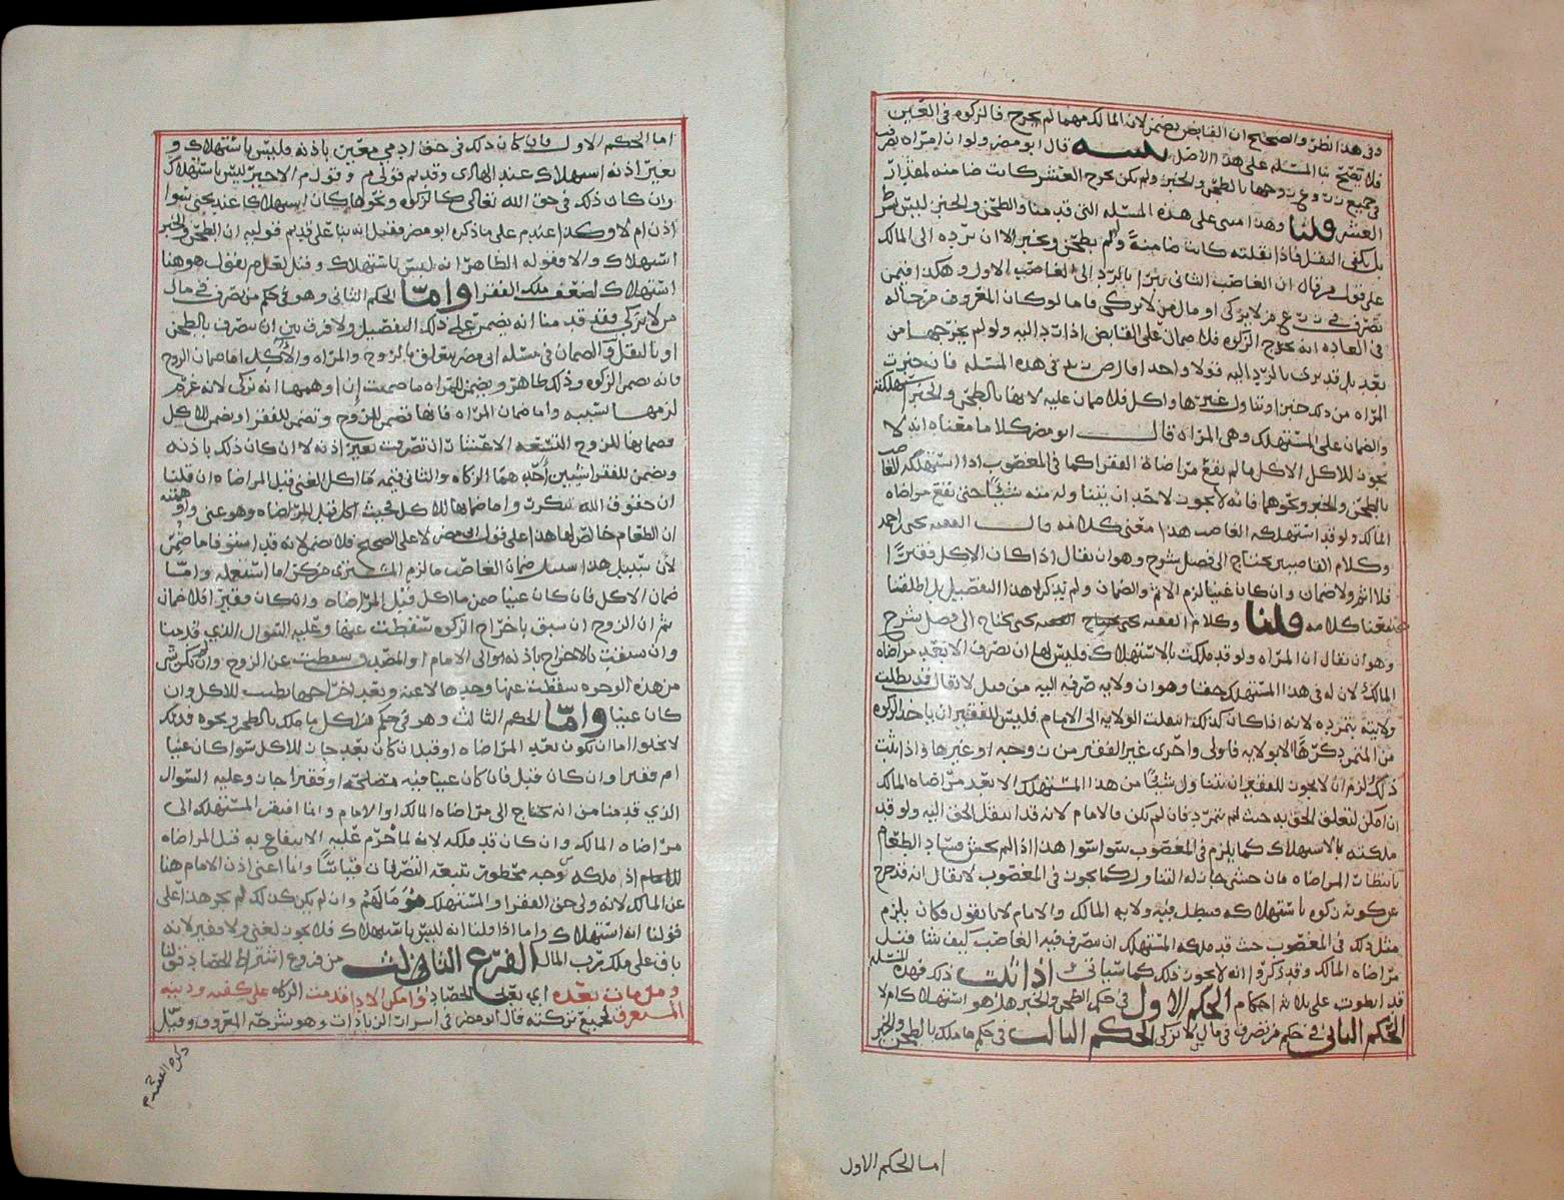 وفي هذا نظر والصحيح ان القابض يضمن لان المالك مهما لم يخرج فالزكوه في العين
فلا يصح بنا المسله على هذا الاصل قال ابو مضر ولو ان امراه
في جميع زوجها بالطحن والخبز ولم يكن يخرج العشر كانت ضامنه لمقدار
العشر قلنا وهذا مبنى على هذه المسله التي قدمنا والطحن والخبز ليس بشرط
بل يكفي النقل فاذا نقلته كانت ضامنة ولم بطحن وخبز الا ان ترده الى المالك
على قول من قال ان الغاصب الثاني يبرا بالرد الى الغاصب الاول وهكذا فيمن
تصرف في زرع من لا يزكى او مال من لا يزكى فاما لو كان المعروف من حاله
في العاده انه يخرج الزكوه فلا ضمان على القابض اذا رد اليه ولو لم يخرجها من
بعد بل قد برى بالرد اليه قولا واحدا في هذه المسله فانه خبزت
المراه من ذلك خبزا وتناول غيرها واكل فلا ضمان عليه لانها بالطحن والخبز استهلكته
والضمان على المستهلك وهي المراه قال ابو مضر كلاما معناه انه لا
يجوز للاكل الاكل ما لم يقع مراضاة الفقرا كما في المغصوب اذا استهلكه الغاصب
بالطحن والخبز ونحوهما فانه لا يجوز لاحد ان يتناوله منه شيئا حتى تقع مراضاه
المالك ولو قد استهلكه الغاصب هذا معنى كلامه قال الفقيه يحيى احمد
وكلام القاضيين يحتاج الى فصل شرح وهو ان يقال اذا كان الاكل فقيرا
فلا اثم ولا ضمان وان كان غنيا لزم الاثم والضمان ولم يذكرا هذا التفصيل بل اطلقنا
معنا كلامه قلنا وكلام الفقيه يحيى يحتاج الى فصل شرح
وهو ان يقال ان المراه ولو قد ملكت بالاستهلاك فليس لها ان تصرف الا بعد مراضاه
المالك لان له في هذا المستهلك حقا وهو ان ولايه صرفه اليه من قبل لا يقال قد بطلت
ولايته بتمرده لانه اذا كان كذلك انتقلت الولايه الى الامام فليس للفقير ان ياخذ الزكوه
من المتمرد كرها الا بولايه فاولى واحرى غير الفقير من زوجه او غيرها واذا ثبت
ذلك لزم ان لا يجوز للفقير ان يتناول شيئا من هذا المستهلك الا بعد مراضاه المالك
ان امكن لتعلق الحق به حيث لم يتمرد فان لم يكن فالامام لانه قد انتقل الحق اليه ولو قد
ملكته بالاستهلاك كما يلزم في المغصوب سوا سوا هذا اذا لم يخش فساد الطعام
بانتظار المراضاه فان خشي جاز له التناول كما يجوز في المغصوب لا يقال انه قد خرج
عن كونه زكوه باستهلاكه فبطل فيه ولايه المالك والامام لانا نقول فكان يلزم
مثل ذلك في المغصوب حيث قد ملكه المستهلك ان يتصرف فيه الغاصب كيف شا قبل
مراضاه المالك وقد ذكروا انه لا يجوز ذلك كما سياتي اذا ثبت ذلك فهذه المسله
قد انطوت على ثلاثه احكام الحكم الاول في حكم الطحن والخبز هل هو استهلاك ام لا
الحكم الثاني في حكم من تصرف في مال من لا يزكى الحكم الثالث في حكم ما ملك بالطحن والخبز
اما الحكم الاول
اما الحكم الاول فان كان ذلك في حق ادمي معين باذنه فليس باستهلاك و
بغير اذنه استهلاك عند الهادى وقديم قولي م وقول م الاخير ليس باستهلاك
وان كان ذلك في حق الله تعالى كالزكوه ونحوها كان استهلاكا عند يحيى سوا
اذن ام لا وكذا عند م على ما ذكره ابو مضر فقيل انه بنا على قديم قوليه ان الطحن والخبز
استهلاك والا فقوله الظاهر انه ليس باستهلاك وقيل لعل م يقول هو هنا
استهلاك لضعف ملك الفقرا واما الحكم الثاني وهو في حكم من تصرف في مال
من لا يزكي فقد قدمنا انه يضمن على ذلك التفصيل ولا فرق بين ان يتصرف بالطحن
او بالنقل و الضمان في مسله ابي مضر يتعلق بالزوج والمراه والاكل اما ضمان الزوج
فانه يضمن الزكوه وذلك ظاهر ويضمن للمراه ما ضمنت ان اوهمها انه زكى لانه غرم
لزمها بسببه واما ضمان المراه فانها تضمن للزوج وتضمن للفقرا وتضمن للاكل
فضمانها للزوج التسعه الاعشار ان تصرفت بغير اذنه لا ان كان ذلك باذنه
وتضمن للفقرا شيين احدهما الزكاه والثاني قيمه ما اكل الغني قبل المراضاه ان قلنا
ان حقوق الله تتكرر واما ضمانها للاكل فحيث اكل قبل المراضاه وهو غني واوهمته
ان الطعام خالص لها هذا على قول ابي مضر لا على الصحيح فلا يضمن لانه قد استوفا ما ضمن
لان سبيل هذا سبيل ضمان الغاصب ما لزم المشتري من كرى ما استعمله واما
ضمان الاكل فان كان غنيا ضمن ما اكل قبل المراضاه وان كان فقيرا فلا ضمان
ثم ان الزوج ان سبق باخراج الزكوه سقطت عنها وعليه السوال الذي قدمنا
وان سبقت بالاخراج باذنه او الى الامام او المصدق سقطت عن الزوج وان لم يكن شي
من هذه الوجوه سقطت عنها وحدها لا عنه وبعد اخراجها يطيب للاكل وان
كان غنيا واما الحكم الثالث وهو في حكم من اكل ما ملك بالطحن ونحوه فذلك
لا يخلوا اما ان يكون بعد المراضاه او قبل ان كان بعد جاز للاكل سوا كان غنيا
ام فقيرا وان كان قبل فان كان غنيا فيه مصلحه او فقيرا جاز وعليه السوال
الذي قدمنا من انه يحتاج الى مراضاه المالك او الامام وانما افتقر المستهلك الى
مراضاه المالك وان كان قد ملكه لانه لما حرم عليه الانتفاع به قبل المراضاه
اذ ملكه من وجه محظور تتبعه التصرفات قياسا وانما اعني اذن الامام هنا
عن المالك لانه ولي حق الفقرا والمستهلك هو مالهم وان لم يكن كذلك لم يجز هذا على
قولنا انه استهلاك واما اذا قلنا انه ليس باستهلاك فلا يجوز لغني ولا فقير لانه
باق على ملك رب المال الفرع الثالث من فروع اشتراط الحصاد قولنا
ومن مات بعده اي بعد الحصاد وامكن الادا قدمت الزكاه على كفنه ودينه
المستغرق لجميع تركته قال ابو مضر في اسرار الزيادات وهو شرحه المعروف وقيل
ذكره الفقيه